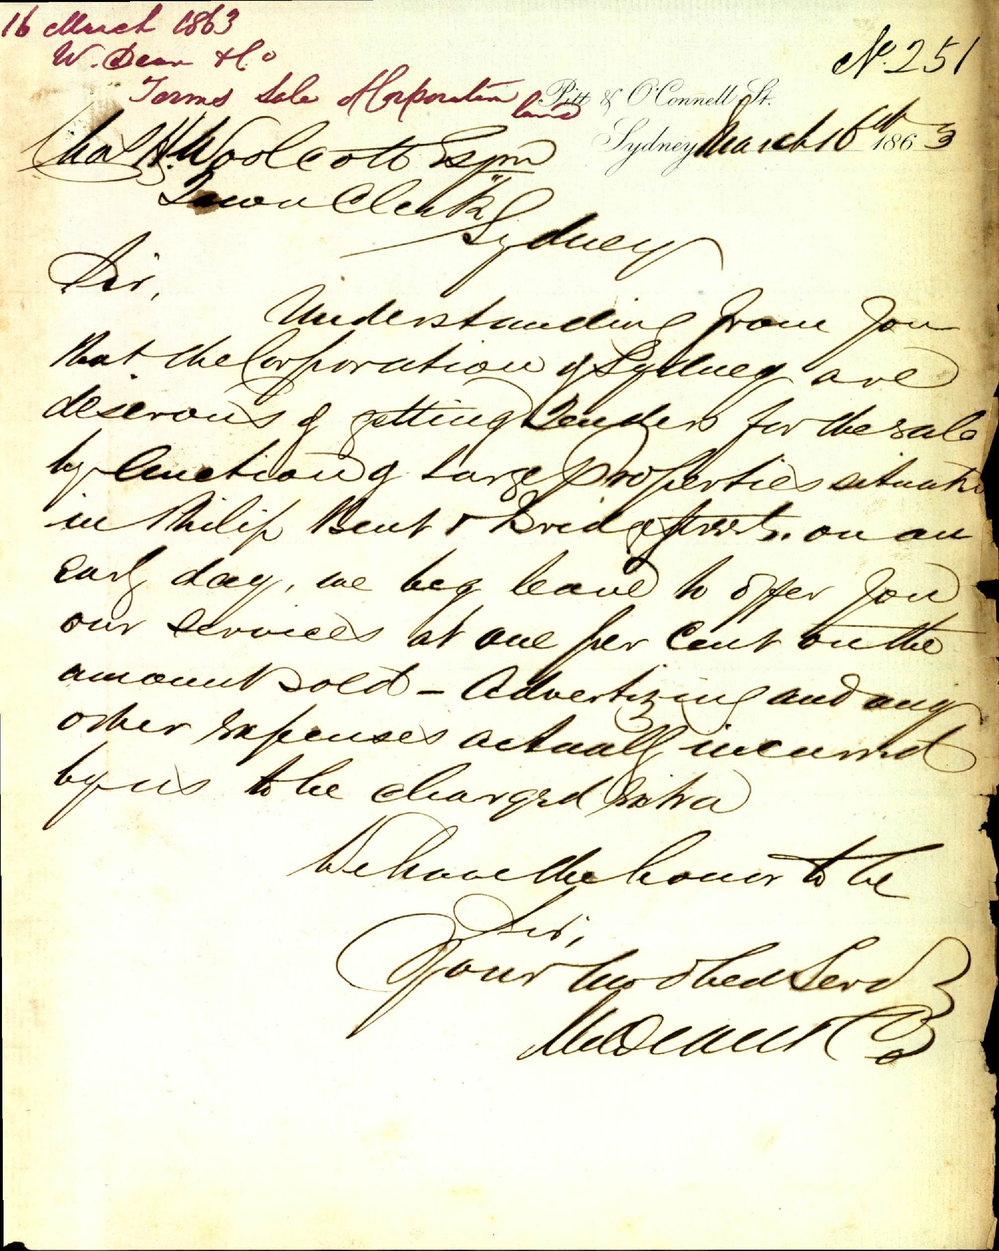 16 March 1863
W. Dean & Co
Terms Sale of Corporation land
No. 251
Pitt & O'Connell St.
Sydney March 16th 1863
Chas H. Woolcott Esqr
Town Clerk
Sydney
Sir,
Understanding from you
that the Corporation of Sydney are
deserous of getting Tenders for the sale
by Auction of Large Properties situate
in Philip Bent & Bridge streets on an
early day, we beg leave to offer you
our services at one per cent on the
amount sold – Advertizing and any
other expenses actually incurred
by us to be charged extra
We have the honor to be
Sir,
Your mo obed Servts
Wm Dean & Co